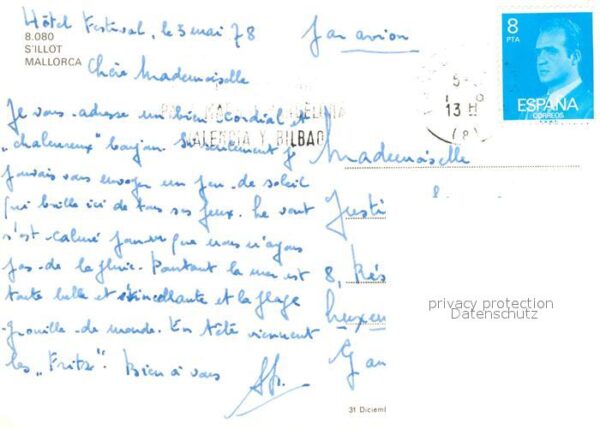 Hôtel Festival, le 3 mai 78
Par avion
8.080
S'ILLOT
MALLORCA
Chère Mademoiselle
Je vous adresse un bien cordial et
"chaleureux" bonjour. Si seulement je
pouvais vous envoyer un peu de soleil
qui brille ici de tous ses feux. Le vent
s'est calmé pourvu que nous n'ayons
pas de la pluie. Pourtant la mer est
toute belle et étincellante et la plage
grouille de monde. En tête viennent
les "Fritz". Bien à vous
8
PTA
ESPAÑA
CORREOS
5-
13 H
VALENCIA Y BILBAO
Mademoiselle
Justi
8, Rés
Luxem
privacy protection
Datenschutz
31 Diciemb